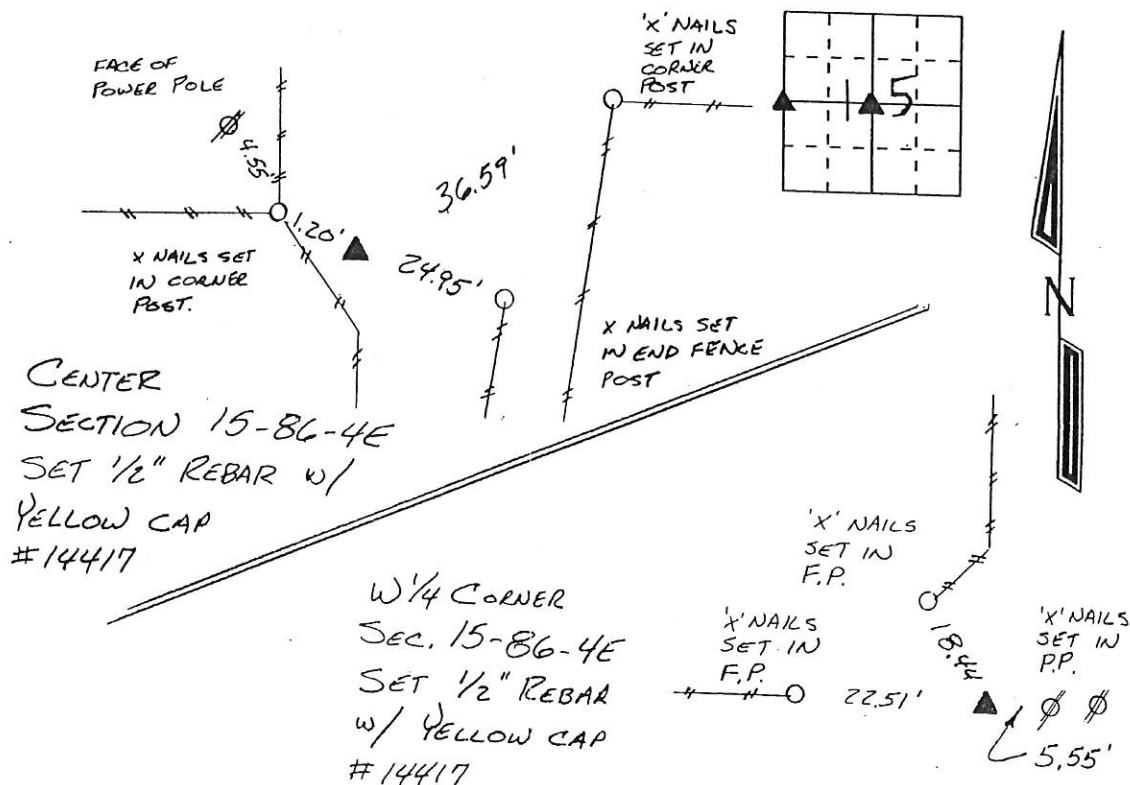 FACE OF
POWER POLE
4.55'
'X' NAILS
SET IN
CORNER
POST
15
36.59'
1.20'
24.95'
X NAILS SET
IN CORNER
POST.
X NAILS SET
IN END FENCE
POST
N
CENTER
SECTION 15-86-4E
SET 1/2" REBAR W/
YELLOW CAP
#14417
'X' NAILS
SET IN
F.P.
W 1/4 CORNER
SEC. 15-86-4E
SET 1/2" REBAR
W/ YELLOW CAP
#14417
'X' NAILS
SET IN
F.P.
22.51'
18.44'
'X' NAILS
SET IN
P.P.
5.55'